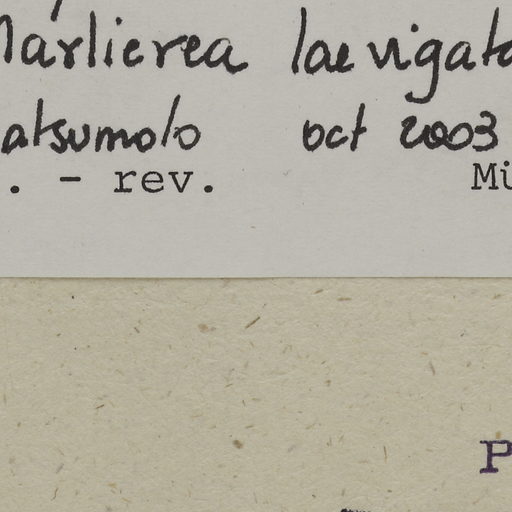 Marlierea laevigata
atsumoto oct 2003
. - rev. Mü
P